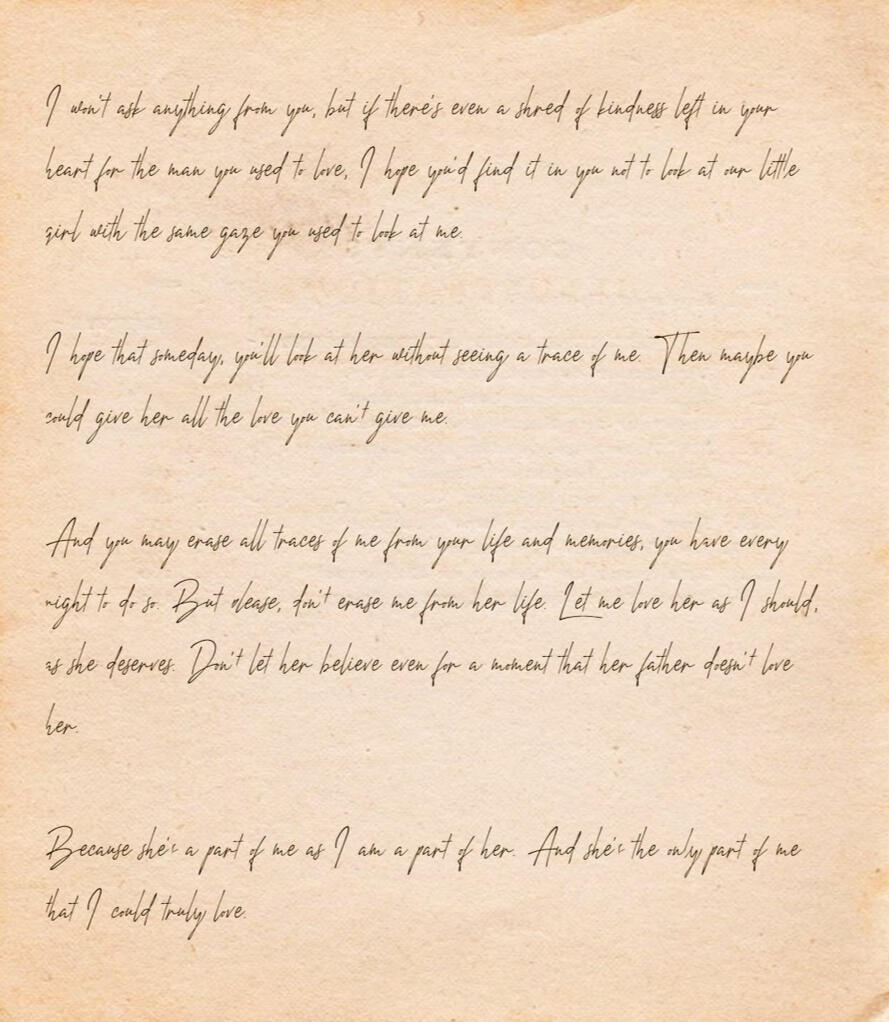 I won't ask anything from you, but if there's even a shred of kindness left in your
heart for the man you used to love, I hope you'd find it in you not to look at our little
girl with the same gaze you used to look at me.
I hope that someday, you'll look at her without seeing a trace of me. Then maybe you
could give her all the love you can't give me.
And you may erase all traces of me from your life and memories, you have every
right to do so. But please, don't erase me from her life. Let me love her as I should,
as she deserves. Don't let her believe even for a moment that her father doesn't love
her.
Because she's a part of me as I am a part of her. And she's the only part of me
that I could truly love.